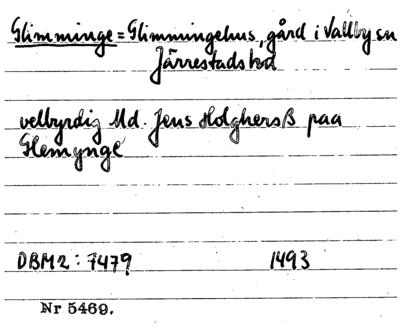 Glimminge = Glimmingehus, gård i Vallby sn
Järrestads hd
velbyrdig Md. Jens Holghersß paa
Glemynge
DBM2: 7479 1493
Nr 5469.